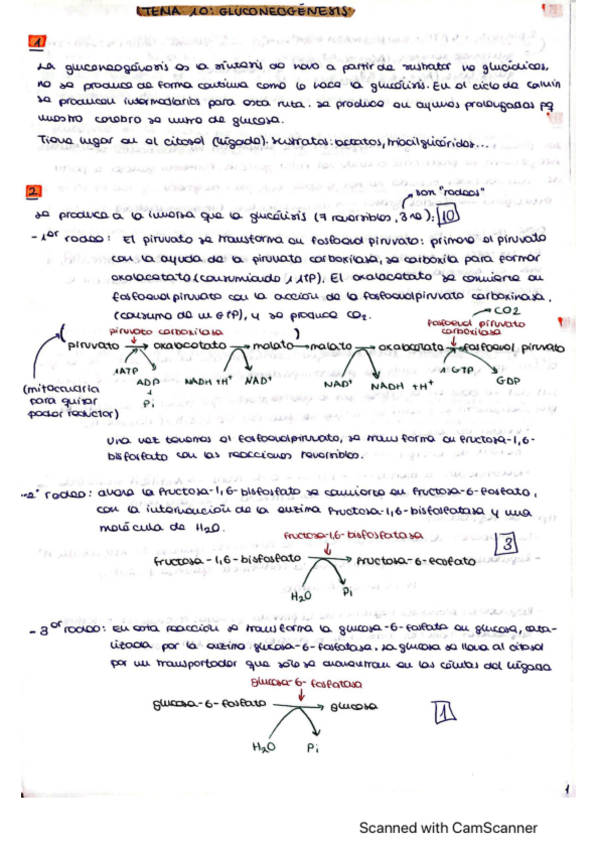 TEMA 10: GLUCONEOGÉNESIS
1
La gluconeogénesis es la síntesis de novo a partir de sustratos no glucídicos,
no se produce de forma continua como lo hace la glucólisis. En el ciclo de Calvin
se producen intermediarios para esta ruta. Se produce en ayunos prolongados pq
nuestro cerebro se nutre de glucosa.
Tiene lugar en el citosol (hígado). Sustratos: lactatos, triacilglicéridos...
2
son "rodeos"
Se produce a la inversa que la glucólisis (7 reversibles, 3 no): 10
- 1er rodeo: El piruvato se transforma en fosfoenol piruvato: primero el piruvato
con la ayuda de la piruvato carboxilasa, se carboxila para formar
oxalacetato (consumiendo 1 ATP). El oxalacetato se convierte en
fosfoenolpiruvato con la acción de la fosfoenolpiruvato carboxinasa,
(consumo de un GTP), y se produce CO2.
CO2
piruvato carboxilasa
fosfoenol piruvato
carboxilasa
( piruvato → oxalacetato → malato ) → malato → oxalacetato → fosfoenol piruvato
1ATP ADP + Pi NADH + H+ NAD+ NAD+ NADH + H+ 1 GTP GDP
(mitocondria
para quitar
poder reductor)
Una vez tenemos el fosfoenolpiruvato, se transforma en fructosa-1,6-
bisfosfato con las reacciones reversibles.
- 2º rodeo: ahora la fructosa-1,6-bisfosfato se convierte en fructosa-6-fosfato,
con la intervención de la enzima fructosa-1,6-bisfosfatasa y una
molécula de H2O.
fructosa-1,6-bisfosfatasa
3
fructosa-1,6-bisfosfato → fructosa-6-fosfato
H2O Pi
- 3er rodeo: En esta reacción se transforma la glucosa-6-fosfato en glucosa, cata-
lizada por la enzima glucosa-6-fosfatasa. La glucosa se lleva al citosol
por un transportador que sólo se encuentran en las células del hígado
glucosa-6-fosfatasa
glucosa-6-fosfato → glucosa
1
H2O Pi
1
Scanned with CamScanner